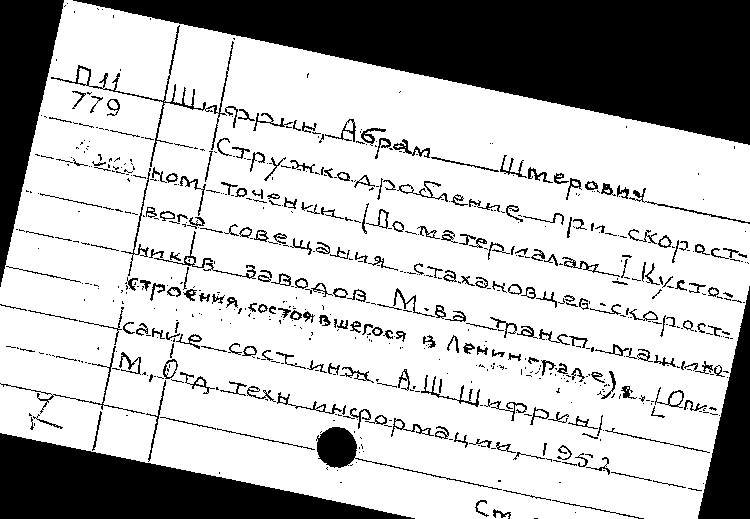 П11
779
Шифрин, Абрам Шмерович
Стружкодробление при скорост-
ном точении. (По материалам I Кусто-
вого совещания стахановцев-скорост-
ников заводов М-ва трансп. машино-
строения, состоявшегося в Ленинграде). [Опи-
сание сост. инж. А.Ш. Шифрин].
М., Отд. техн. информации, 1952
См.